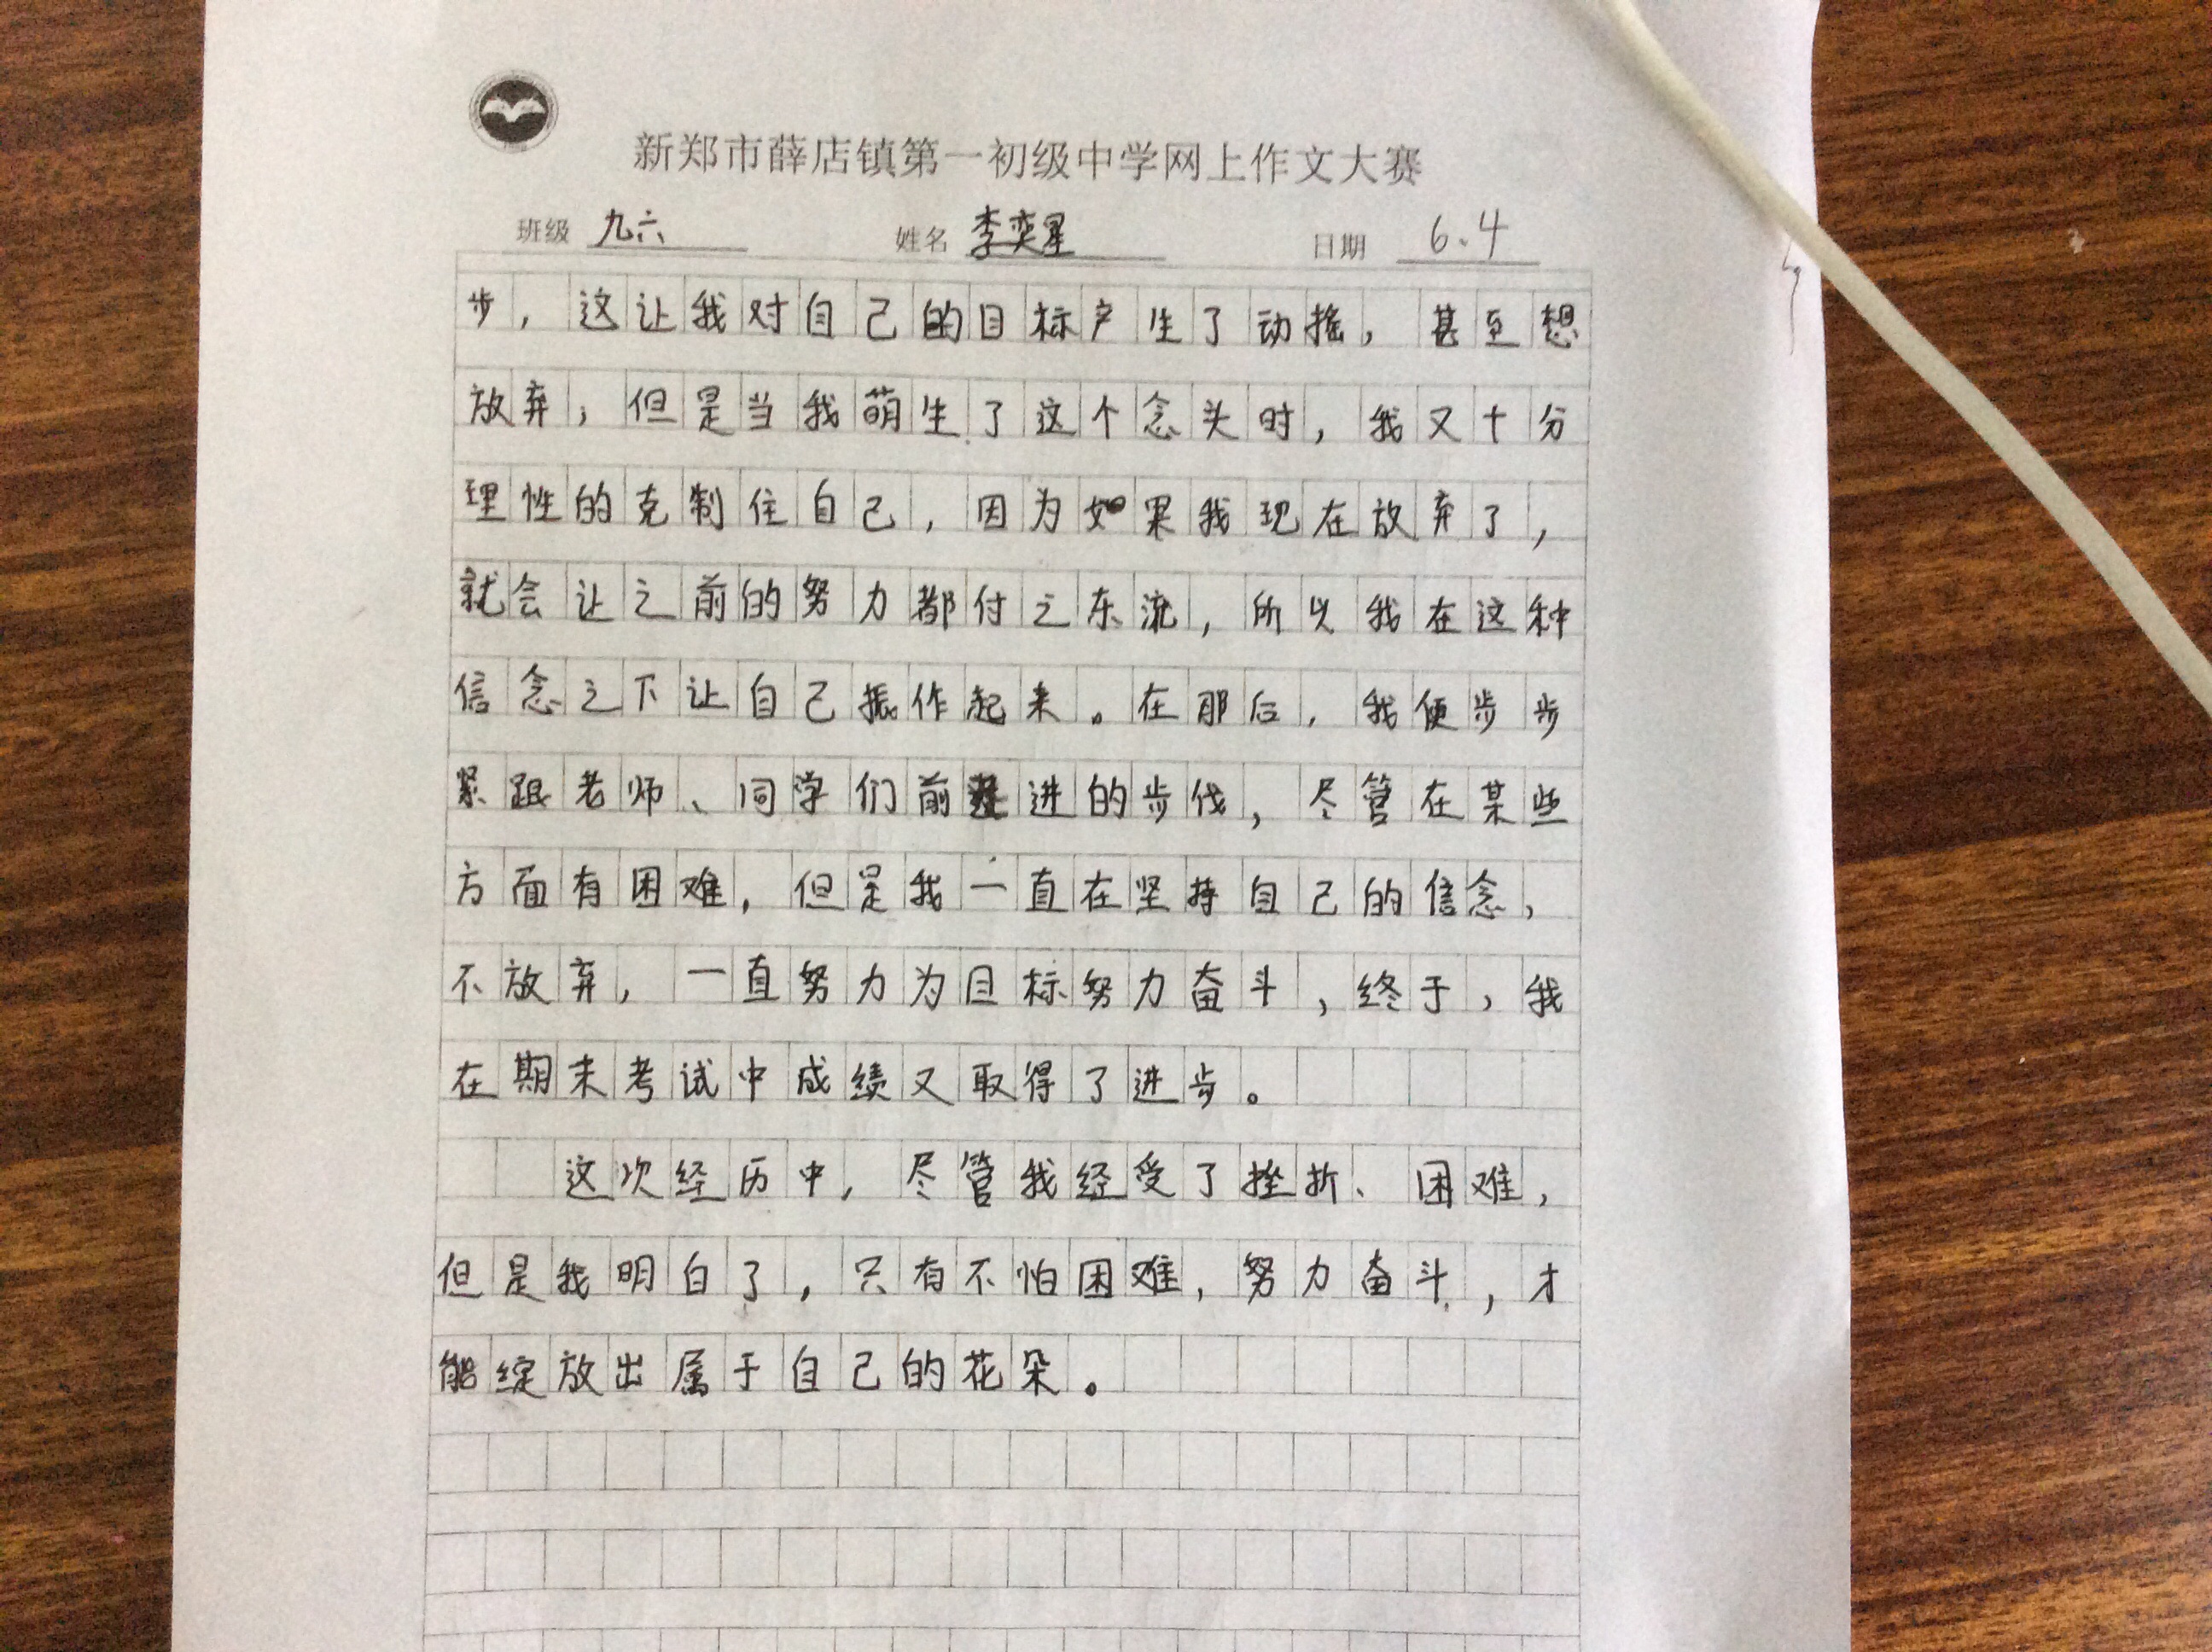 新郑市薛店镇第一初级中学网上作文大赛
班级 九六 姓名 李奕星 日期 6.4
步，这让我对自己的目标产生了动摇，甚至想
放弃，但是当我萌生了这个念头时，我又十分
理性的克制住自己，因为如果我现在放弃了，
就会让之前的努力都付之东流，所以我在这种
信念之下让自己振作起来。在那后，我便步步
紧跟老师、同学们前进的步伐，尽管在某些
方面有困难，但是我一直在坚持自己的信念，
不放弃，一直努力为目标努力奋斗，终于，我
在期末考试中成绩又取得了进步。
这次经历中，尽管我经受了挫折、困难，
但是我明白了，只有不怕困难，努力奋斗，才
能绽放出属于自己的花朵。